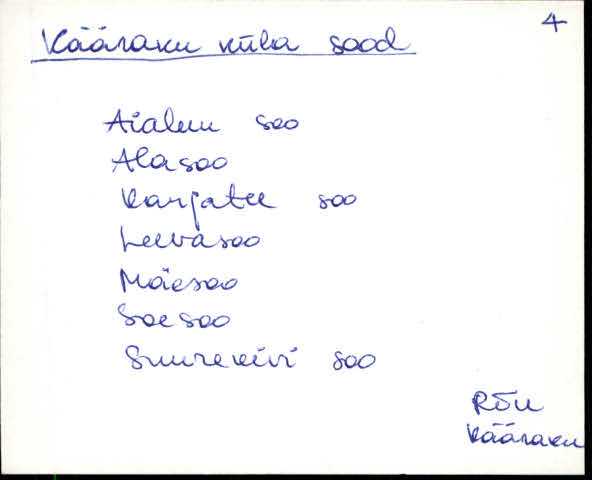 4
Kääraku küla sood
Aialuu soo
Alasoo
Karjatee soo
Leevasoo
Mäesoo
Soesoo
Suurekivi soo
RÕU
Kääraku